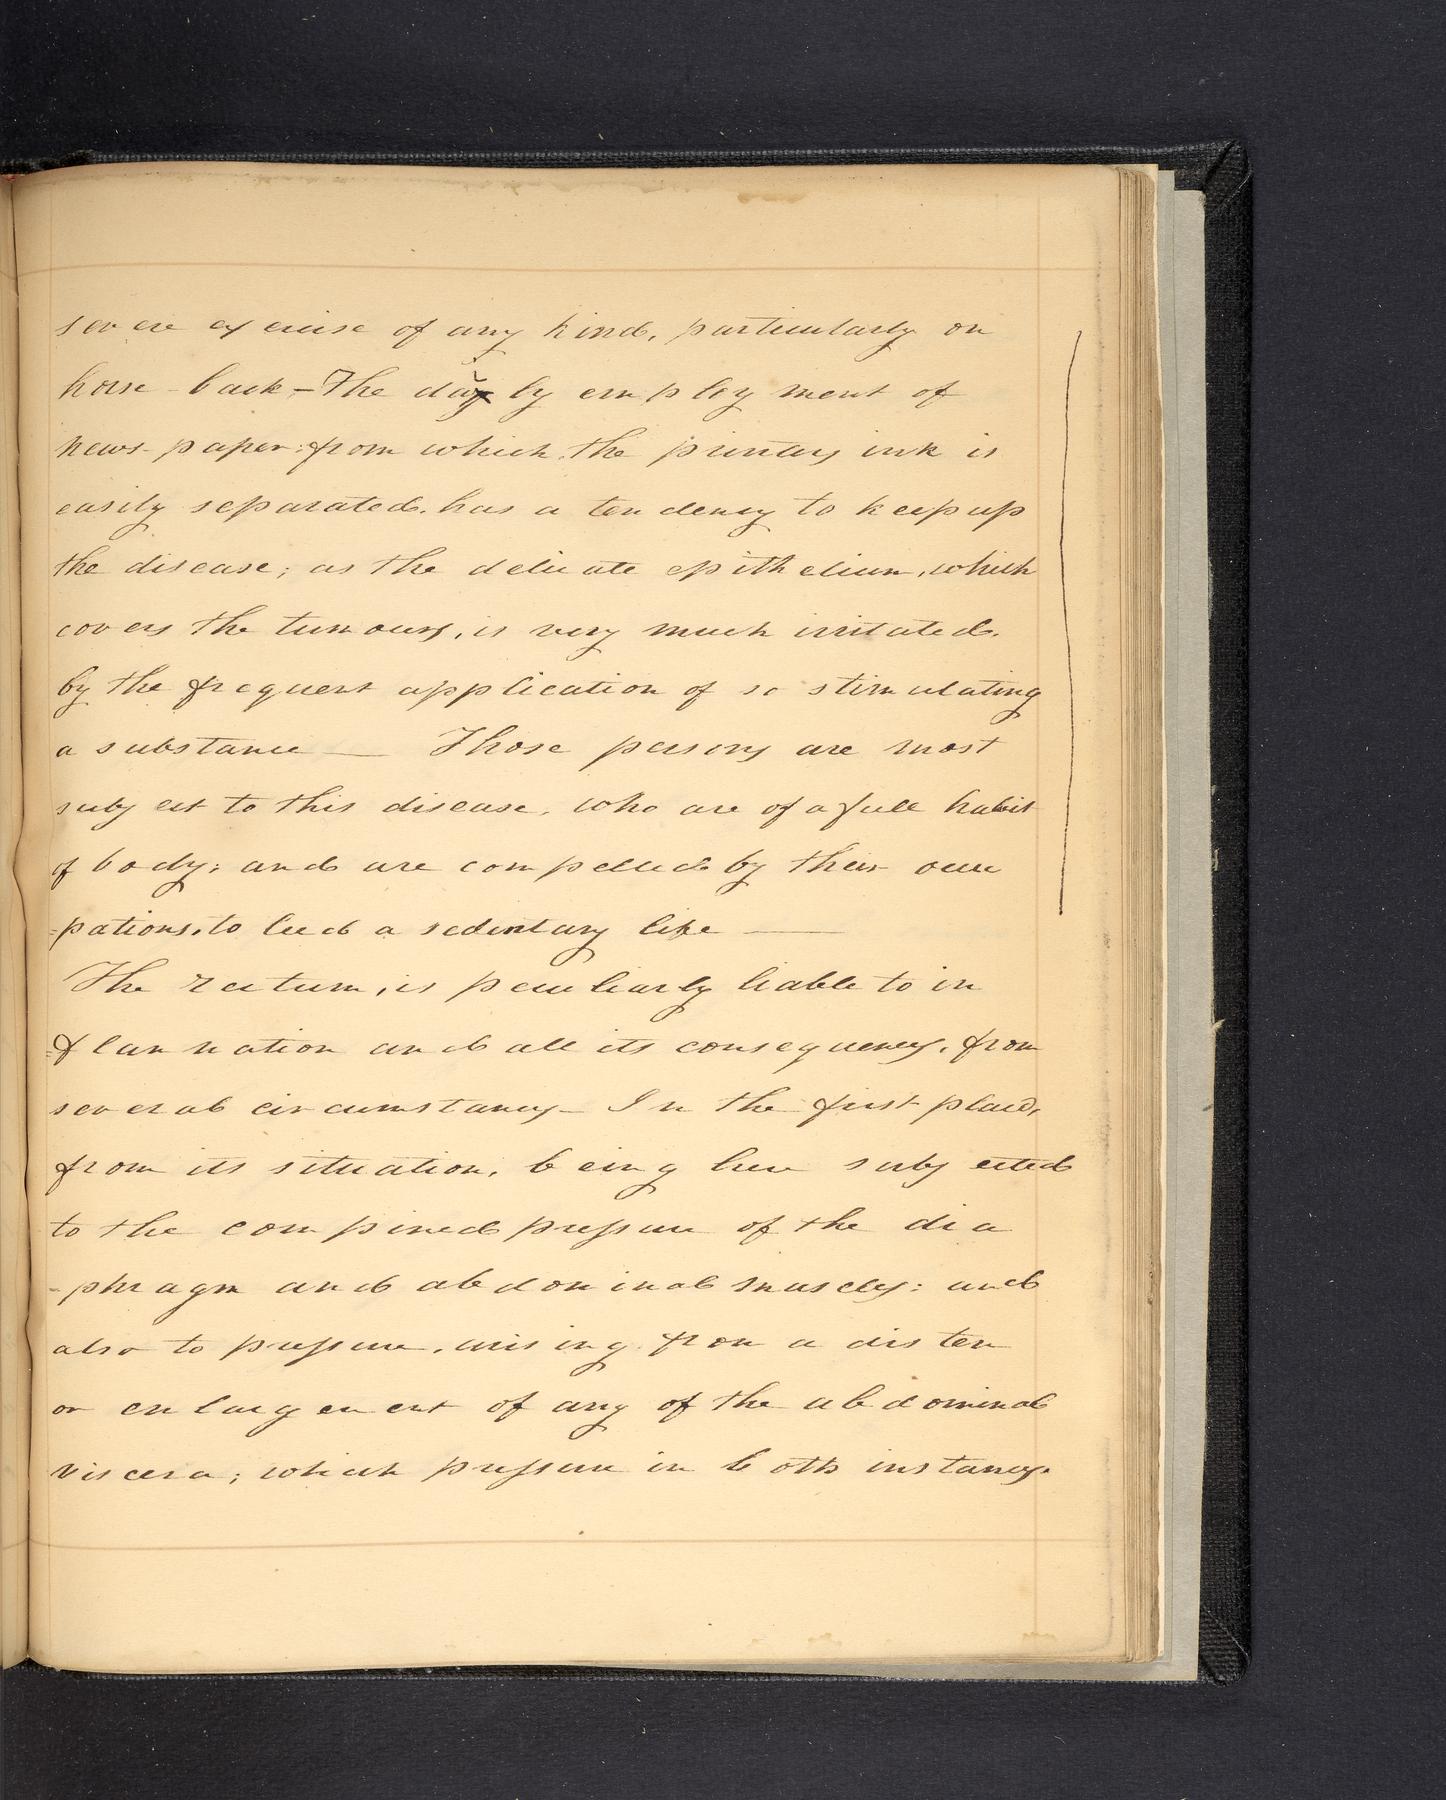 severe exercise of any kind, particularly on
horse-back – The daily employment of
news-paper: from which, the printers ink is
easily separated. has a tendency to keep up
the disease; as the delicate epithelium, which
covers the tumours, is very much irritated.
by the frequent application of so stimulating
a substance — Those persons are most
subject to this disease, who are of a full habit
of body; and are compelled by their occu
=pations, to lead a sedentary life —
The rectum, is peculiarly liable to in
=flammation and all its consequences, from
several circumstances – In the first place,
from its situation, being here subjected
to the compined pressure of the dia
-phragm and abdominal muscles: and
also to pressure, arising from a disten
or enlargement of any of the abdominal
viscera; which pressure in both instances.